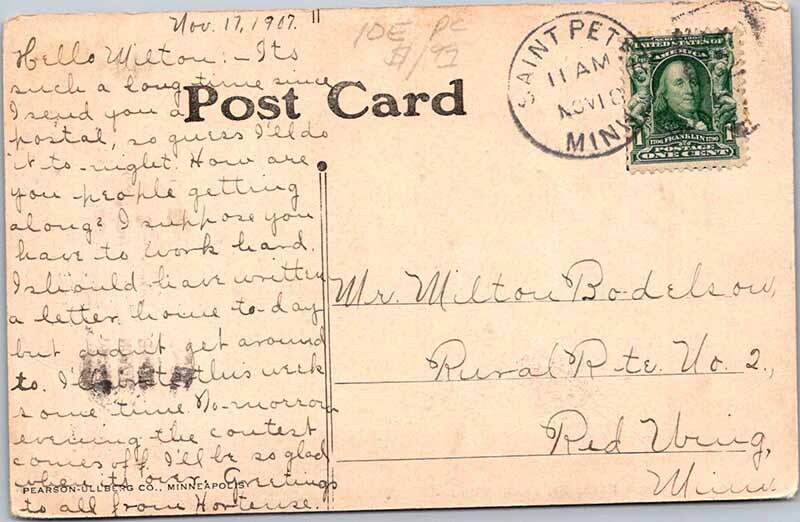 Nov. 17, 1907.
Hello Milton: - Its
such a long time since
I send you a
postal, so guess I'll do
it to-night. How are
you people getting
along? I suppose you
have to work hard.
I should have written
a letter home to-day
but didn't get around
to. I'll this week
some time. To-morrow
evening the contest
comes off. I'll be so glad
when its over. Greetings
to all from Hortense.
PEARSON-ULLBERG CO., MINNEAPOLIS
IDE PC
Post Card
SAINT PETE
11 AM
NOV 18
MINN
UNITED STATES OF
AMERICA
1706 FRANKLIN 1790
1 POSTAGE 1
ONE CENT
Mr. Milton Bodelson,
Rural Rte. No. 2.,
Red Wing,
Minn.